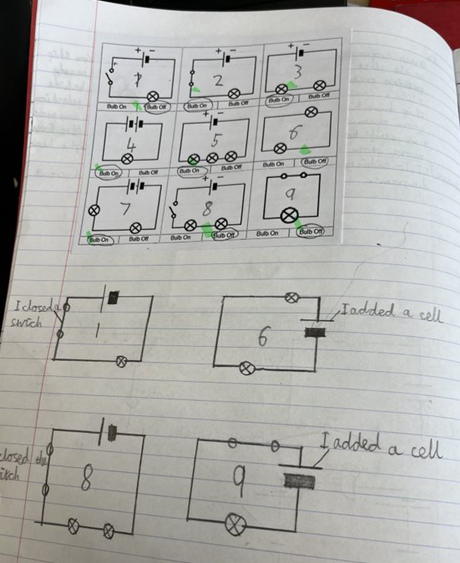 + −
+ −
+ −
1
2
3
Bulb On Bulb Off
Bulb On Bulb Off
Bulb On Bulb Off
+ −
4
5
6
Bulb On Bulb Off
Bulb On Bulb Off
Bulb On Bulb Off
+ −
7
8
9
Bulb On Bulb Off
Bulb On Bulb Off
Bulb On Bulb Off
I closed a
switch
1
6
I added a cell
closed the
8
9
I added a cell